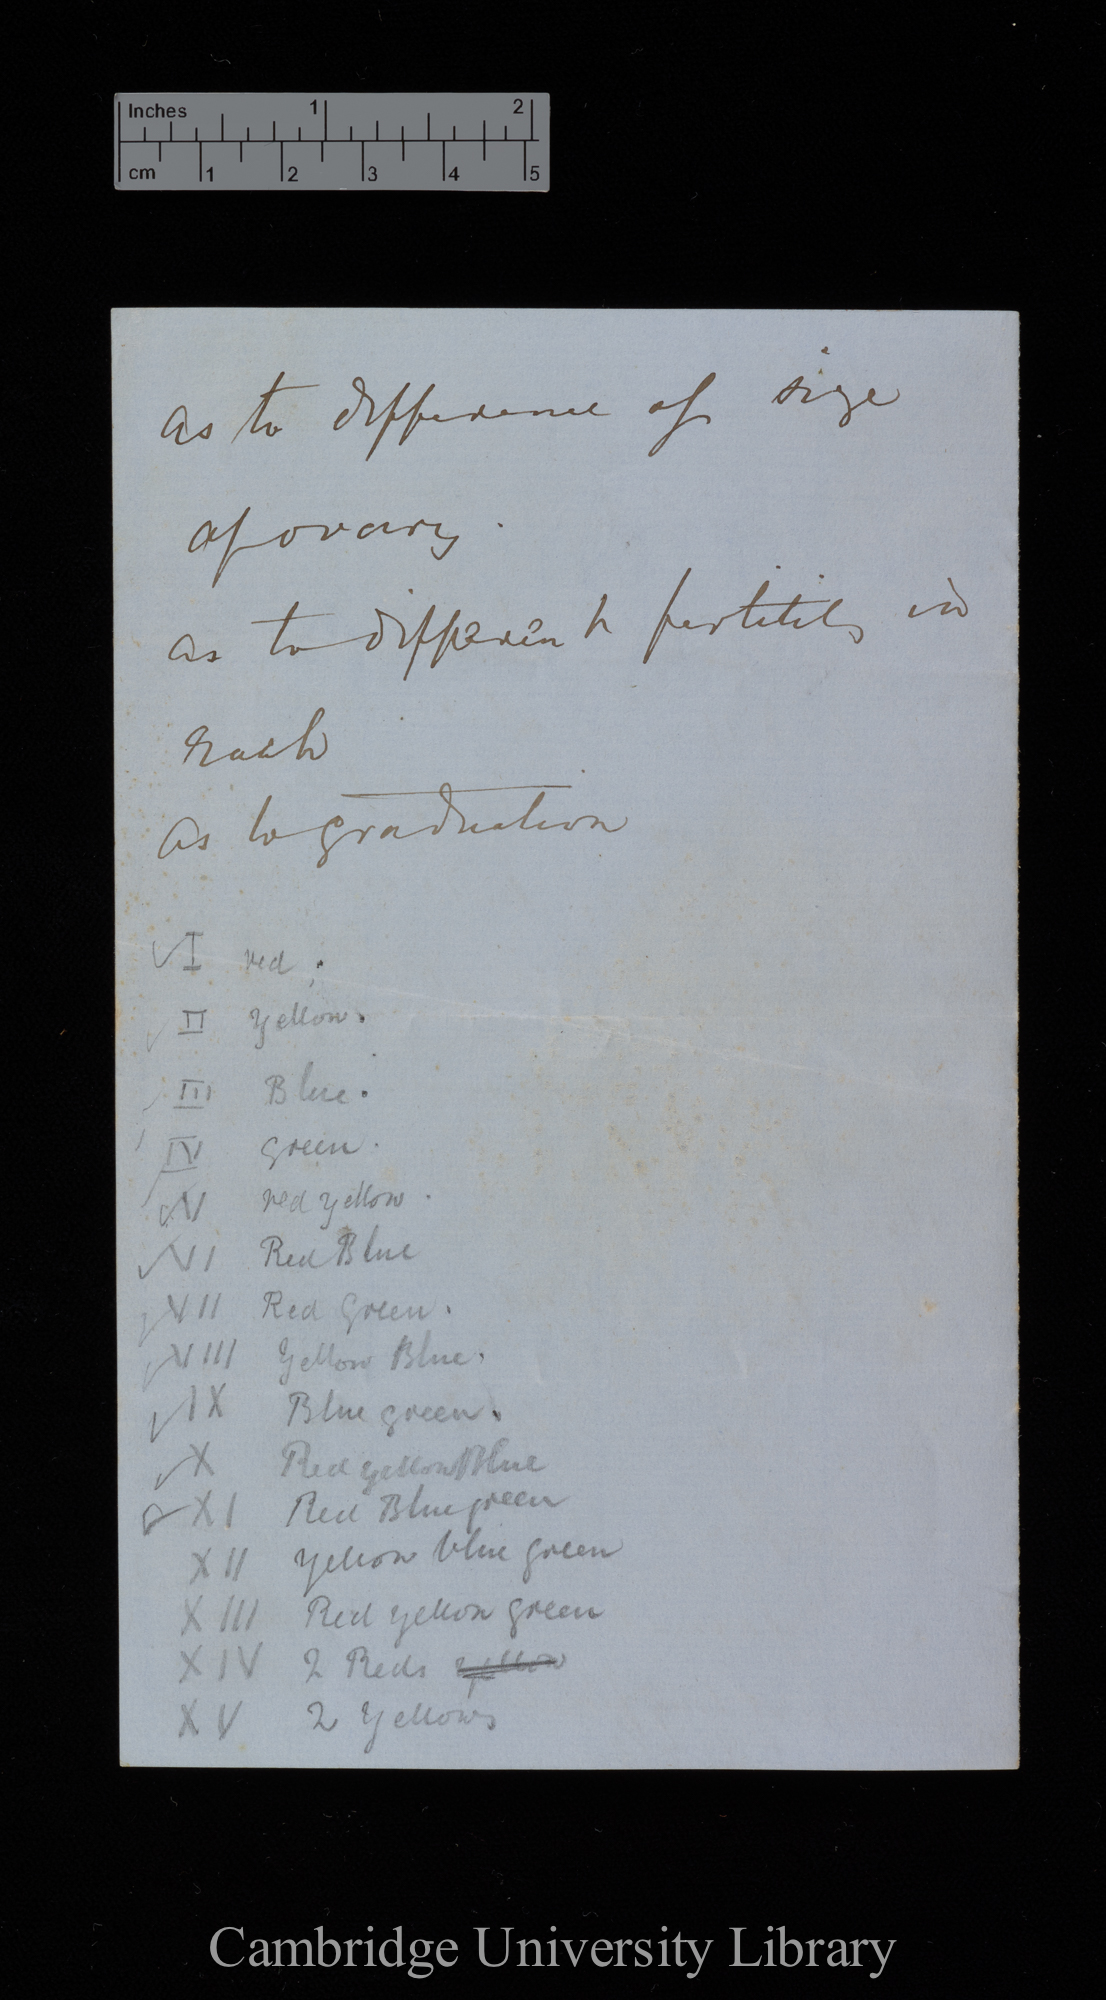 Inches 1 2
cm 1 2 3 4 5
as to difference of size
of ovary.
as to different fertility in
each
as to graduation
✓ I red.
✓ II Yellow.
✓ III Blue.
✓ IV green.
✓ V red yellow.
✓ VI Red Blue
✓ VII Red Green.
✓ VIII Yellow Blue.
✓ IX Blue green.
✓ X Red yellow Blue
✓ XI Red Blue green
XII Yellow blue green
XIII Red yellow green
XIV 2 Reds yellow
XV 2 Yellows
Cambridge University Library